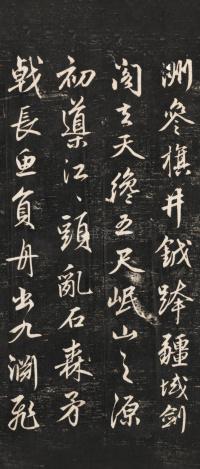 洲參旗井鉞跨疆域劍
閣去天纔五尺岷山之源
初導江〻頭亂石森矛
戟長魚負舟出九淵飛